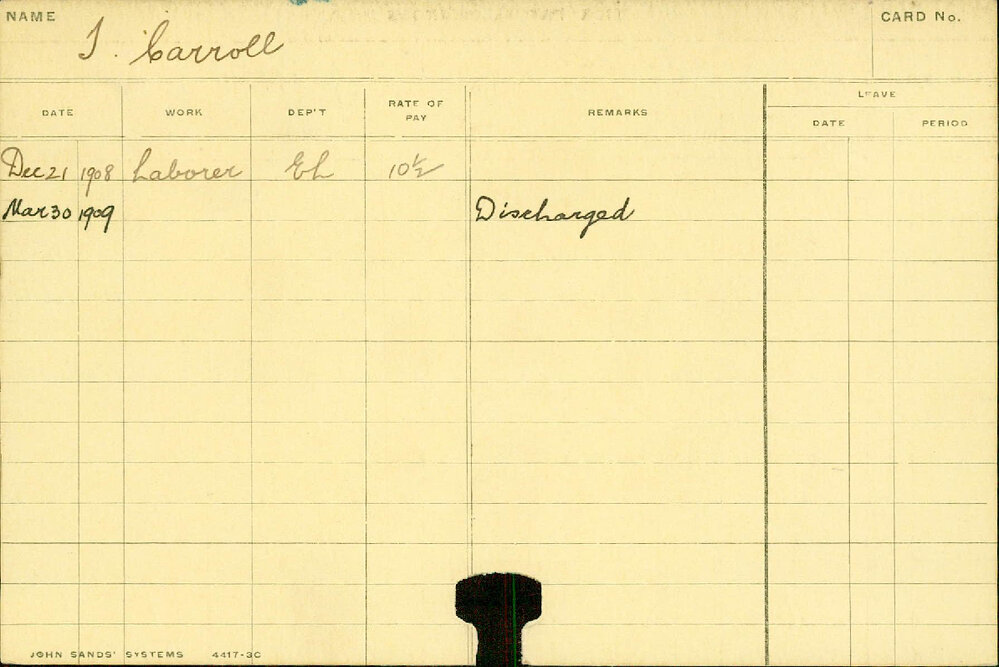 NAME
CARD No.
Carroll
LEAVE
DATE WORK DEP'T RATE OF PAY REMARKS DATE PERIOD
Dec 21 1908 Laborer EL 10½
Mar 30 1909 Discharged
JOHN SANDS' SYSTEMS 4417-3C